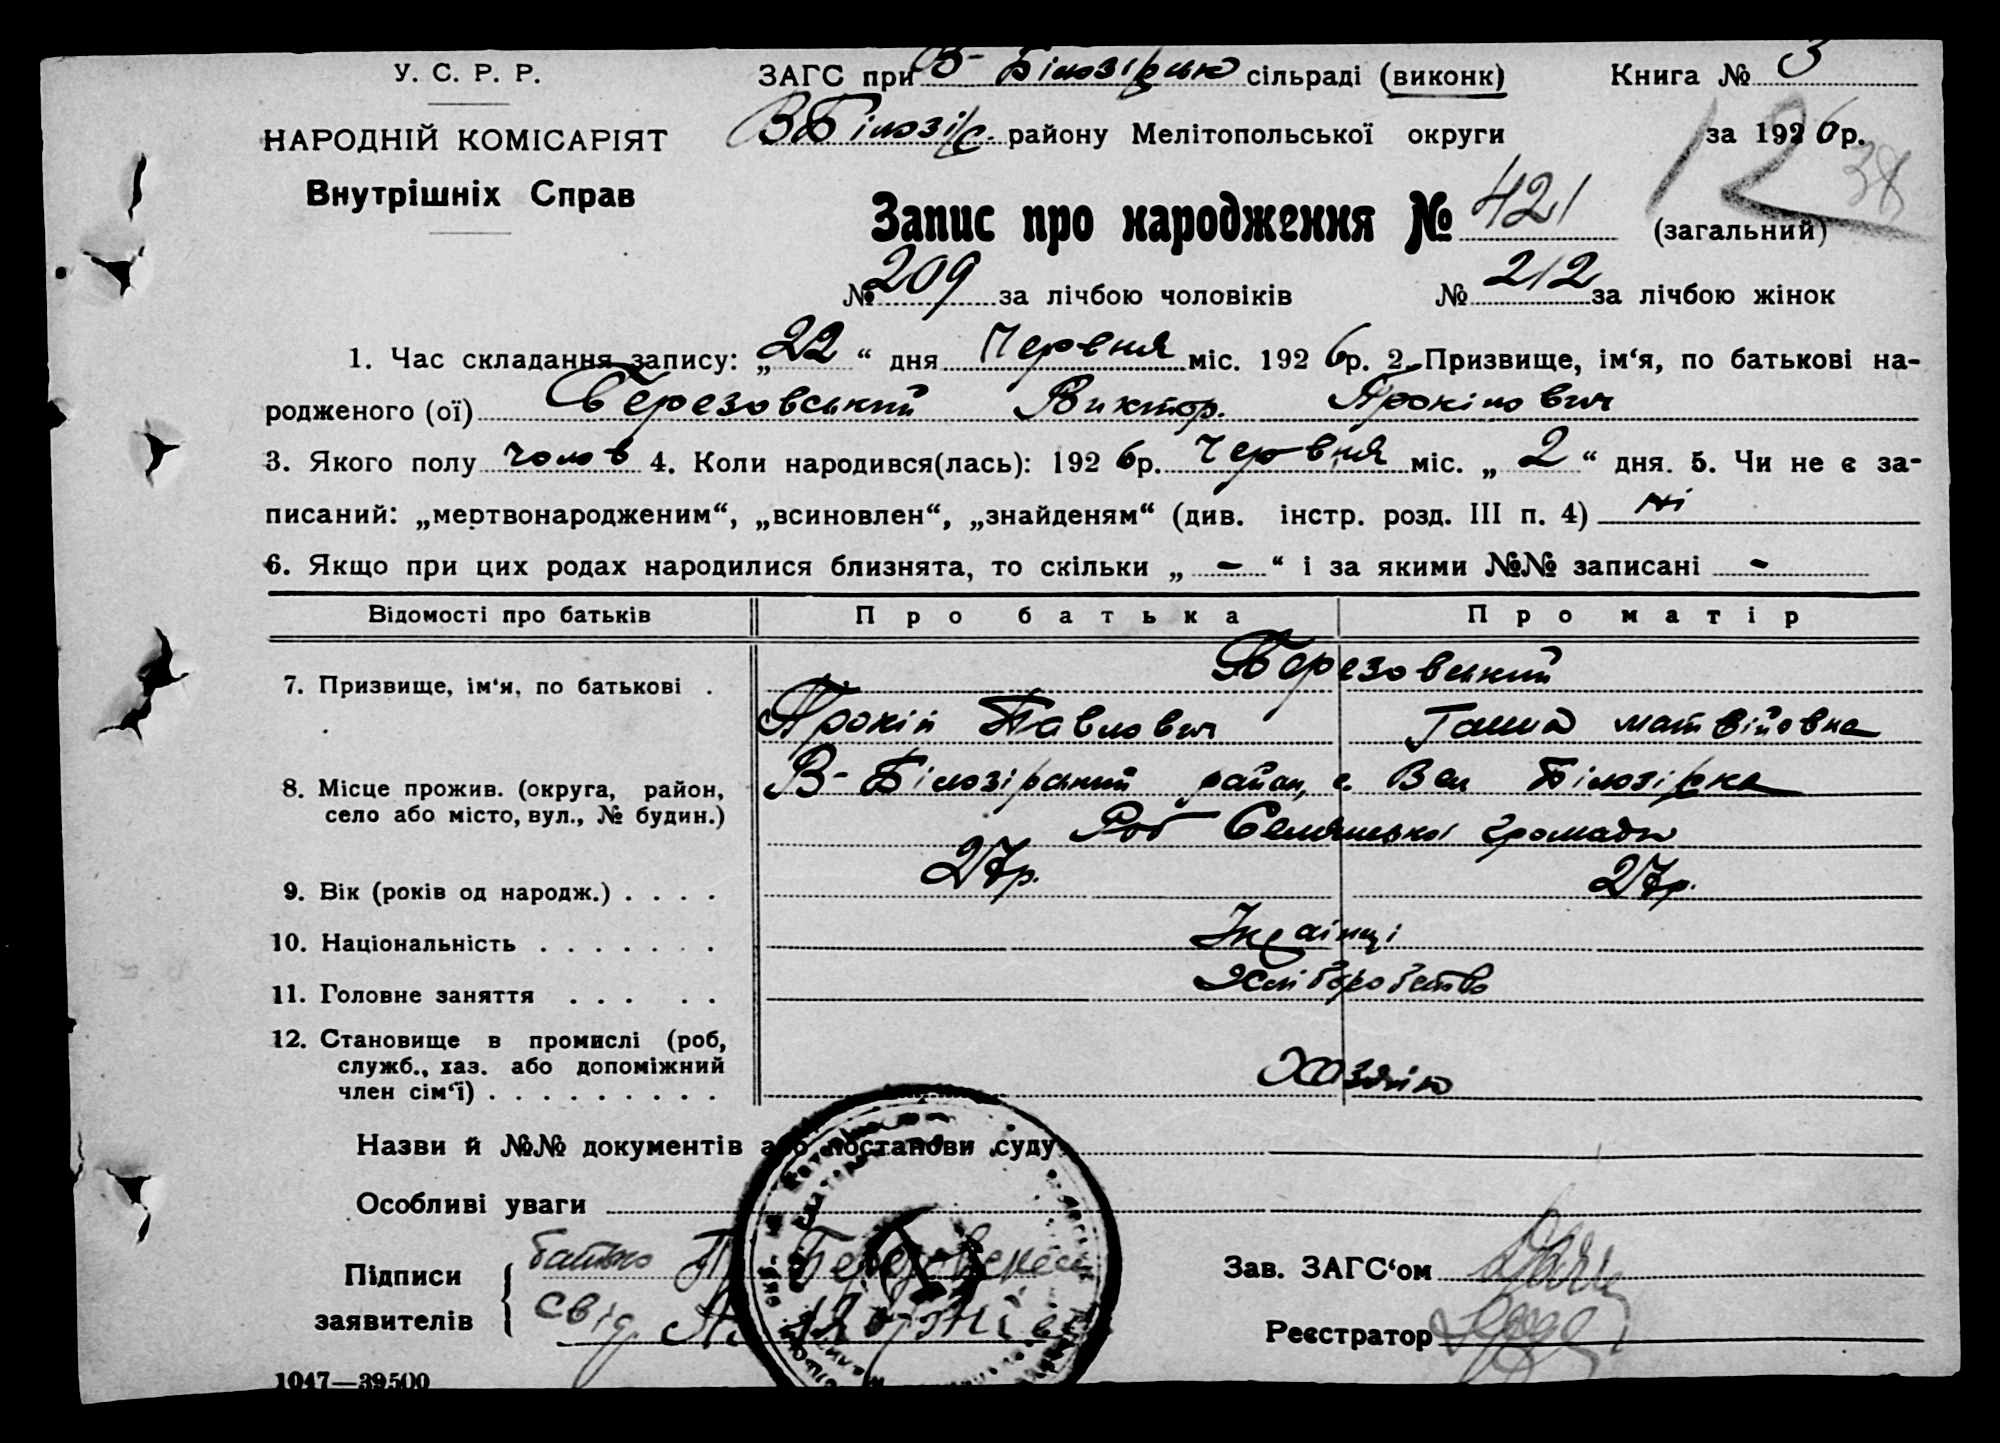 У. С. Р. Р.
ЗАГС при В-Білозірськ сільраді (виконк)
Книга № 3
НАРОДНІЙ КОМІСАРІЯТ
ВБілозір. району Мелітопольської округи
за 1926р.
12
38
Внутрішніх Справ
Запис про народження № 421 (загальний)
№ 209 за лічбою чоловіків № 212 за лічбою жінок
1. Час складання запису: „22“ дня Червня міс. 1926р. 2. Призвище, ім‘я, по батькові на-
родженого (ої) Березовський Виктор. Прокіпович
3. Якого полу чолов 4. Коли народився(лась): 1926р. Червня міс. „2“ дня. 5. Чи не є за-
писаний: „мертвонародженим“, „всиновлен“, „знайденям“ (див. інстр. розд. III п. 4) ні
6. Якщо при цих родах народилися близнята, то скільки „ - “ і за якими №№ записані -
Відомості про батьків Про батька Про матір
7. Призвище, ім‘я, по батькові . Березовський
Прокіп Павлович Ганна Матвійовна
8. Місце прожив. (округа, район, В-Білозірський район, с. Вел Білозірка
село або місто, вул., № будин.) Роб Селянської громади
9. Вік (років од народж.) . . . . 27р. 27р.
10. Національність . . . . . . . Українці
11. Головне заняття . . . . . Хліборобство
12. Становище в промислі (роб,
служб., хаз. або допоміжний
член сім‘ї) . . . . . . . . . Хазяїн
Назви й №№ документів або постанови суду
Особливі уваги
Підписи заявителів
батько П Березовский
свід. А.
Зав. ЗАГС‘ом
Реєстратор
1047—39500